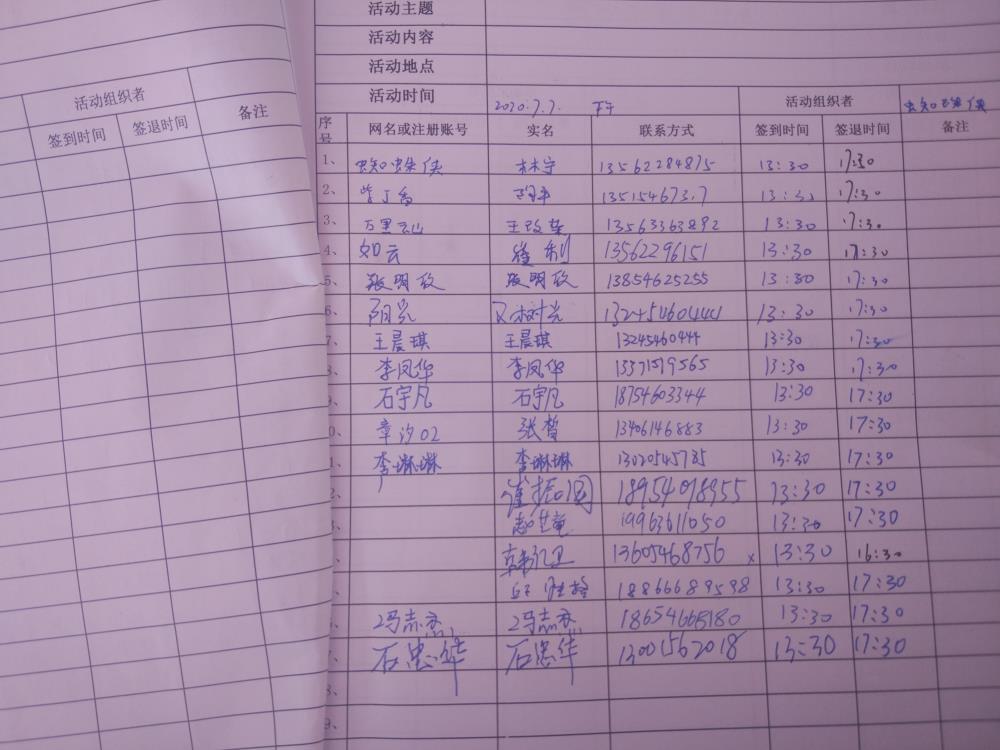 活动组织者
签到时间 签退时间 备注
活动主题
活动内容
活动地点
活动时间 2020.7.7. 下午 活动组织者 蜘蛛侠
序号 网名或注册账号 实名 联系方式 签到时间 签退时间 备注
1、 蜘蛛侠 林宁 13562284875 13:30 17:30
2、 紫丁香 13:30 17:30
3、 万里云山 13563363892 13:30 17:30
4、 如云 崔利 13562296151 13:30 17:30
5、 张明玫 张明玫 13854625255 13:30 17:30
6、 阳光 树光 13:30 17:30
7、 王晨琪 王晨琪 13245460444 13:30 17:30
李凤华 李凤华 13371519565 13:30 17:30
石宇凡 石宇凡 18754603344 13:30 17:30
章汐02 张哲 13406146883 13:30 17:30
李琳琳 李琳琳 13:30 17:30
崔振国 18954078955 13:30 17:30
19963611050 13:30 17:30
韩卫 13605468756 x 13:30 16:30
18866689598 13:30 17:30
冯志杰 冯志杰 18654665180 13:30 17:30
石忠华 石忠华 13001562018 13:30 17:30